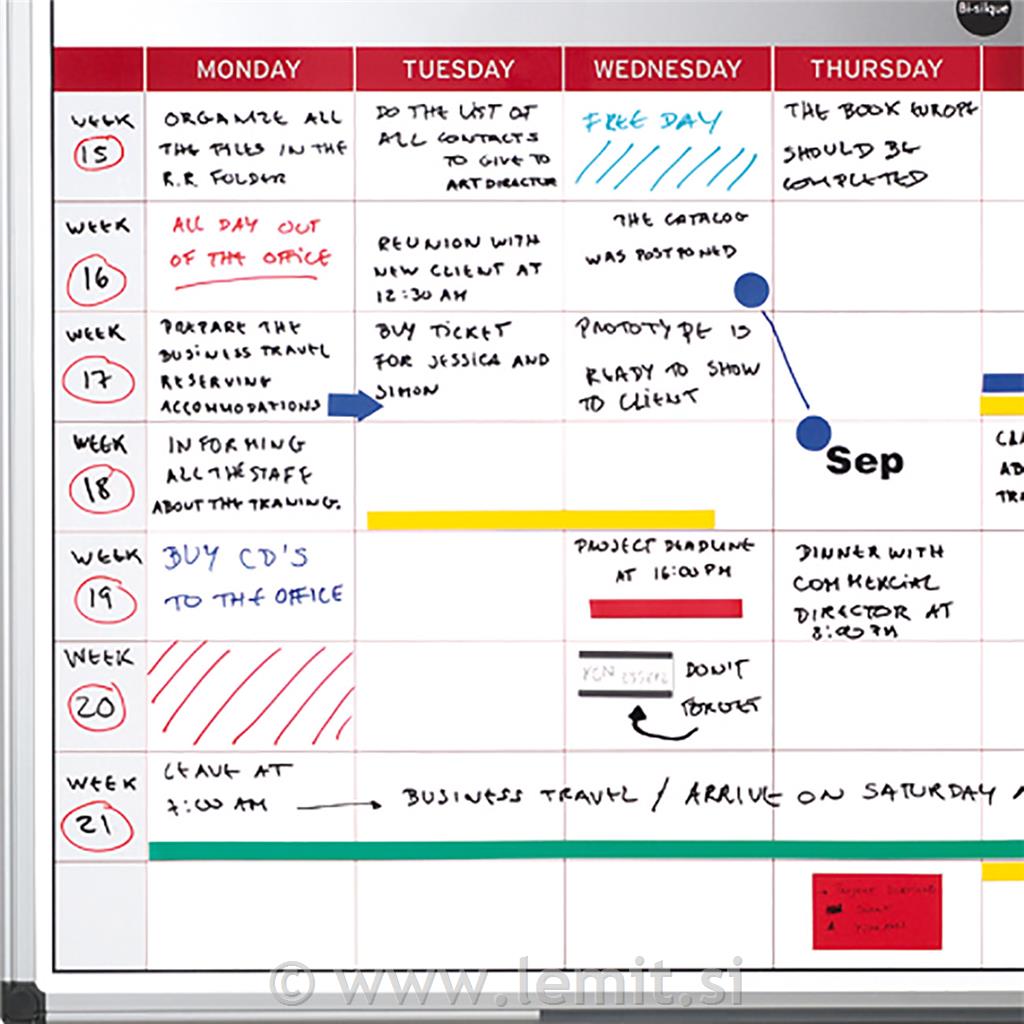 Bi-silque
MONDAY TUESDAY WEDNESDAY THURSDAY
WEEK
15
ORGANIZE ALL
THE FILES IN THE
R.R FOLDER
DO THE LIST OF
ALL CONTACTS
TO GIVE TO
ART DIRECTOR
FREE DAY
THE BOOK EUROPE
SHOULD BE
COMPLETED
WEEK
16
ALL DAY OUT
OF THE OFFICE
REUNION WITH
NEW CLIENT AT
12:30 AM
THE CATALOG
WAS POSTPONED
WEEK
17
PREPARE THE
BUSINESS TRAVEL
RESERVING
ACCOMMODATIONS
BUY TICKET
FOR JESSICA AND
SIMON
PROTOTYPE IS
READY TO SHOW
TO CLIENT
WEEK
18
INFORMING
ALL THE STAFF
ABOUT THE TRANING.
Sep
WEEK
19
BUY CD'S
TO THE OFFICE
PROJECT DEADLINE
AT 16:00 PM
DINNER WITH
COMMERCIAL
DIRECTOR AT
8:00 PM
WEEK
20
DON'T
FORGET
WEEK
21
LEAVE AT
7:00 AM
BUSINESS TRAVEL / ARRIVE ON SATURDAY
© www.lemit.si